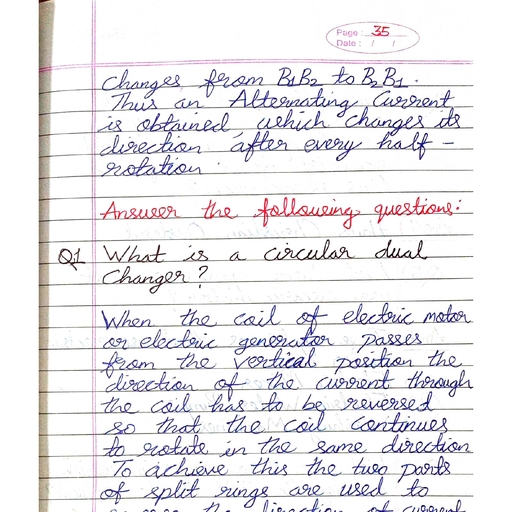 Page: 35
Date: / /
Changes from B1B2 to B2B1.
Thus an Alternating Current
is obtained, which changes its
direction after every half -
rotation.
Answer the following questions:
Q1 What is a circular dual
Changer?
When the coil of electric motor
or electric generator passes
from the vertical position the
direction of the current through
the coil has to be reversed
so that the coil continues
to rotate in the same direction
To achieve this the two parts
of split rings are used to
the direction of current